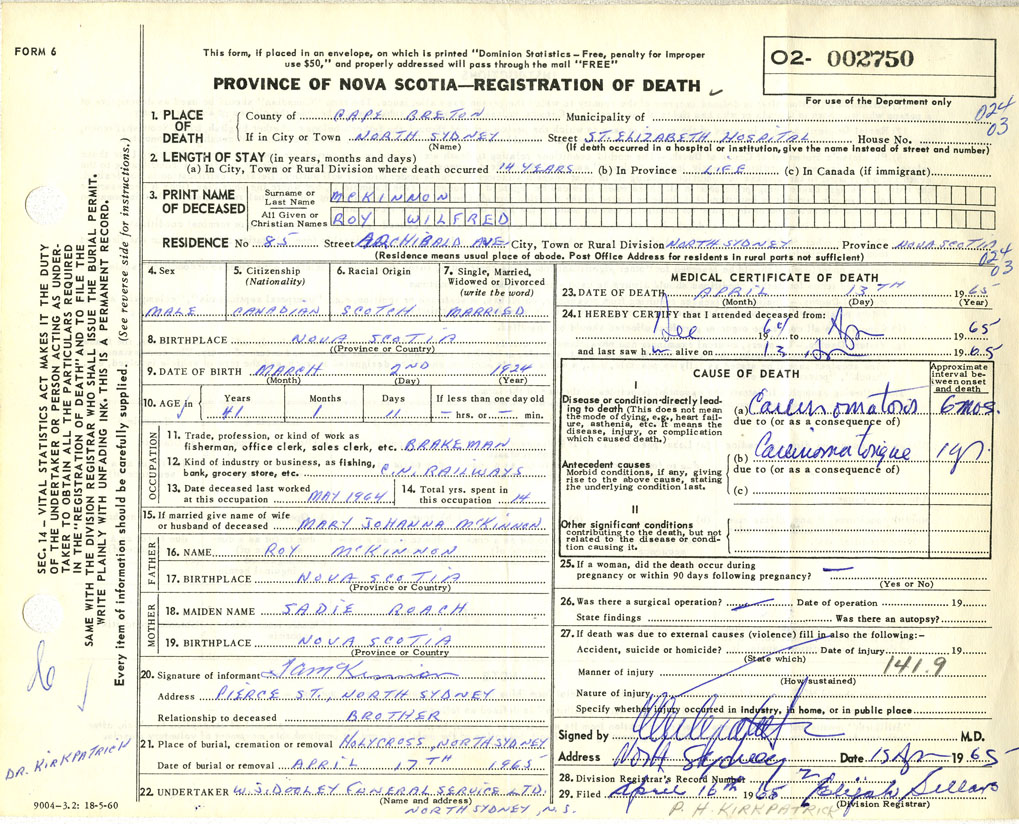 FORM 6
This form, if placed in an envelope, on which is printed "Dominion Statistics – Free, penalty for improper
use $50," and properly addressed will pass through the mail "FREE"
O2- 002750
PROVINCE OF NOVA SCOTIA—REGISTRATION OF DEATH
For use of the Department only
024
03
1. PLACE OF DEATH County of CAPE BRETON Municipality of
If in City or Town NORTH SYDNEY Street ST. ELIZABETH HOSPITAL House No.
(Name) (If death occurred in a hospital or institution, give the name instead of street and number)
2. LENGTH OF STAY (in years, months and days)
(a) In City, Town or Rural Division where death occurred 14 YEARS (b) In Province LIFE (c) In Canada (if immigrant)
3. PRINT NAME OF DECEASED Surname or Last Name MCKINNON
All Given or Christian Names ROY WILFRED
RESIDENCE No 85 Street ARCHIBALD AVE City, Town or Rural Division NORTH SYDNEY Province NOVA SCOTIA
(Residence means usual place of abode. Post Office Address for residents in rural parts not sufficient)
024
03
4. Sex 5. Citizenship (Nationality) 6. Racial Origin 7. Single, Married, Widowed or Divorced (write the word)
MALE CANADIAN SCOTCH MARRIED
8. BIRTHPLACE NOVA SCOTIA
(Province or Country)
9. DATE OF BIRTH MARCH 2ND 1924
(Month) (Day) (Year)
10. AGE in Years Months Days If less than one day old
41 1 11 — hrs. or — min.
OCCUPATION
11. Trade, profession, or kind of work as
fisherman, office clerk, sales clerk, etc. BRAKEMAN
12. Kind of industry or business, as fishing,
bank, grocery store, etc. C.N. RAILWAYS
13. Date deceased last worked at this occupation MAY 1964 14. Total yrs. spent in this occupation 14
15. If married give name of wife
or husband of deceased MARY JOHANNA MCKINNON
FATHER
16. NAME ROY MCKINNON
17. BIRTHPLACE NOVA SCOTIA
(Province or Country)
MOTHER
18. MAIDEN NAME SADIE ROACH
19. BIRTHPLACE NOVA SCOTIA
(Province or Country
20. Signature of informant
Address PIERCE ST., NORTH SYDNEY
Relationship to deceased BROTHER
21. Place of burial, cremation or removal HOLYCROSS, NORTH SYDNEY
Date of burial or removal APRIL 17TH 1965
22. UNDERTAKER W.S. DOOLEY FUNERAL SERVICE LTD.
(Name and address)
NORTH SYDNEY, N.S.
MEDICAL CERTIFICATE OF DEATH
23. DATE OF DEATH APRIL 13TH 1965
(Month) (Day) (Year)
24. I HEREBY CERTIFY that I attended deceased from:
Dec 1964 to Apr 1965
and last saw him alive on 13 Apr 1965
CAUSE OF DEATH
Approximate interval between onset and death
I
Disease or condition directly leading to death (This does not mean the mode of dying, e.g., heart failure, asthenia, etc. It means the disease, injury, or complication which caused death.)
(a) Carcinomatosis 6 mos.
due to (or as a consequence of)
Antecedent causes
Morbid conditions, if any, giving rise to the above cause, stating the underlying condition last.
(b) Carcinoma tongue 1 yr.
due to (or as a consequence of)
(c)
II
Other significant conditions
contributing to the death, but not related to the disease or condition causing it.
25. If a woman, did the death occur during
pregnancy or within 90 days following pregnancy? —
(Yes or No)
26. Was there a surgical operation? — Date of operation 19
State findings Was there an autopsy?
27. If death was due to external causes (violence) fill in also the following:–
Accident, suicide or homicide? Date of injury 19
(State which)
Manner of injury 141.9
(How sustained)
Nature of injury
Specify whether injury occurred in industry, in home, or in public place
Signed by M.D.
Address North Sydney Date 15 Apr 1965
28. Division Registrar's Record Number
29. Filed April 16th 1965 Elijah Sellars
(Division Registrar)
P. H. KIRKPATRICK
SEC. 14 – VITAL STATISTICS ACT MAKES IT THE DUTY
OF THE UNDERTAKER OR PERSON ACTING AS UNDER-
TAKER TO OBTAIN ALL THE PARTICULARS REQUIRED
IN THE "REGISTRATION OF DEATH" AND TO FILE THE
SAME WITH THE DIVISION REGISTRAR WHO SHALL ISSUE THE BURIAL PERMIT.
WRITE PLAINLY WITH UNFADING INK. THIS IS A PERMANENT RECORD.
Every item of information should be carefully supplied. (See reverse side for instructions.)
DR. KIRKPATRICK
9004-3.2: 18-5-60